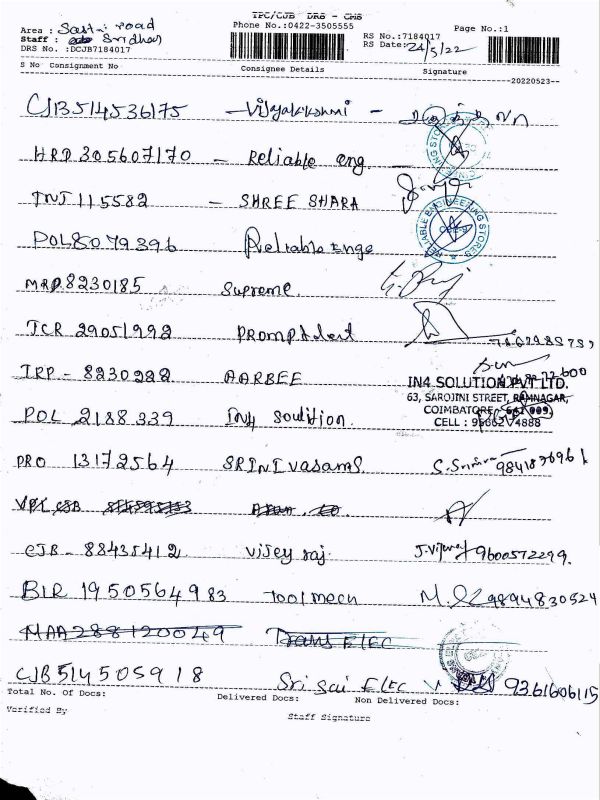 TPC/CJB DRS - CMS
Area : Sastri road
Phone No.:0422-3505555
Page No.:1
Staff : Sridhar
RS No.:7184017
DRS No. :DCJB7184017
RS Date: 24/5/22
S No Consignment No Consignee Details Signature
20220523--
CJB514536175 - Vijayalakshmi -
HRD 305607170 - Reliable eng.
TNJ 115582 - SHREE SHARA
POL8079396 Reliable Enge
RELIABLE ENGINEERING STORES
MRD.8230185 Supreme.
TCR 29051992 Prompt Alert
TRP - 8230222 AARBEE
IN4 SOLUTION PVT LTD.
63, SAROJINI STREET, RAMNAGAR,
COIMBATORE - 641 009.
CELL : 95662 74888
POL 2188339 IN4 Soulition.
PRO 13172564 SRINIVASAMS. 9841876961
VPI CJB
CJB - 88435412 Vijey raj. J.Vijey 9600572299.
BLR 1950564983 Toolmech 9894830524
MAA288120049 Trans ELEC
CJB514505918 Sri Sai ELEC 9361606115
Total No. Of Docs: Delivered Docs: Non Delivered Docs:
Verified By Staff Signature